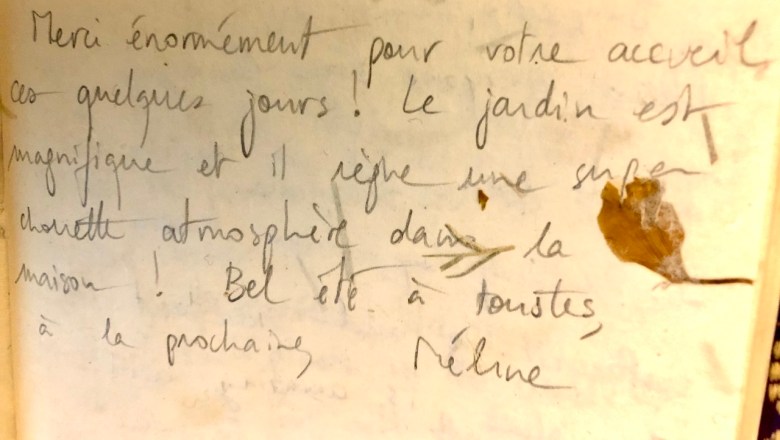 Merci énormément pour votre accueil,
ces quelques jours ! Le jardin est
magnifique et il règne une super
chouette atmosphère dans la
maison ! Bel été à toustes,
à la prochaine, Méline